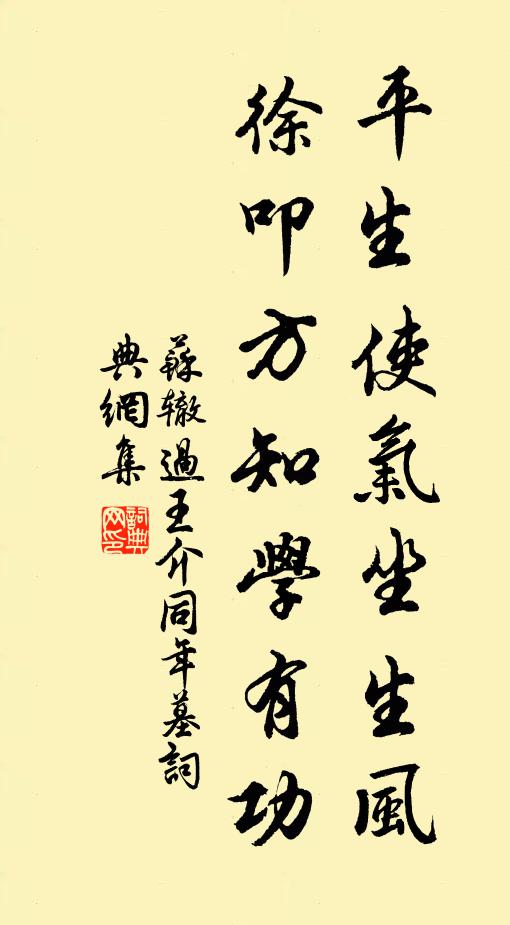 平生使氣坐生風
徐叩方知學有功
蘇轍過王介同年墓詞
典網集
詞典
网印